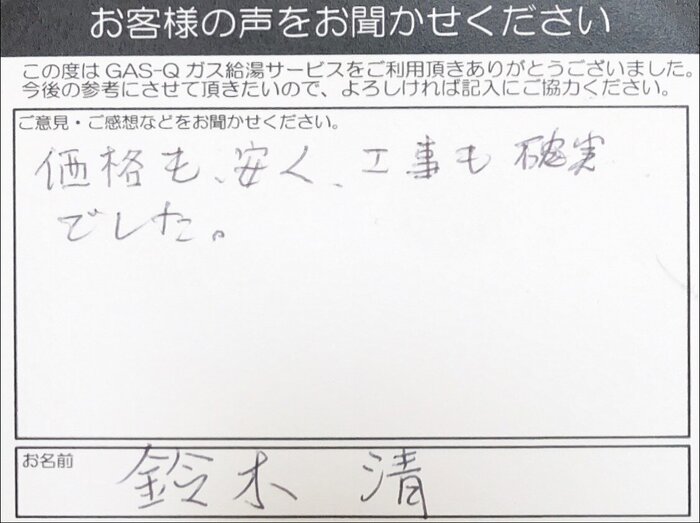 お客様の声をお聞かせください
この度は GAS-Q ガス給湯サービスをご利用頂きありがとうございました。
今後の参考にさせて頂きたいので、よろしければ記入にご協力ください。
ご意見・ご感想などをお聞かせください。
価格も、安く、工事も確実
でした。
お名前 鈴木 清